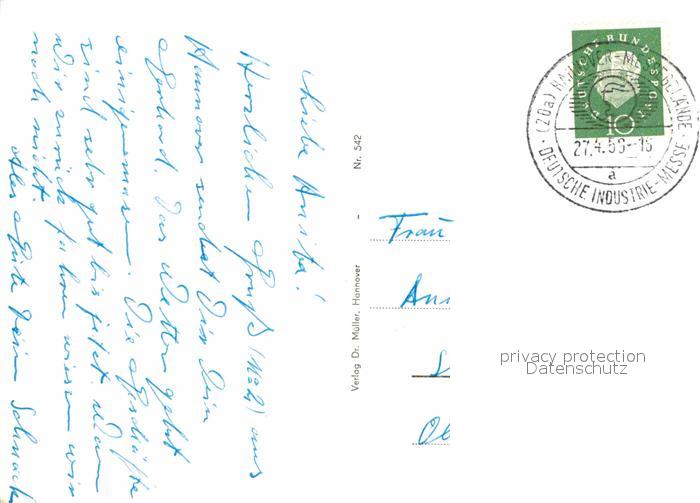 Liebe Anita!
Herzlichen Gruß (No 2) aus
Hannover sendet Dir Dein
Gerhard. Das Wetter geht
einigermaßen. Die Geschäfte
sind sehr gut bis jetzt. Wann
wir zurück fahren wissen wir
noch nicht.
Alles Gute Dein Schnack
Verlag Dr. Müller, Hannover - Nr. 542
Frau
DEUTSCHE BUNDESPOST
10
(20a) HANNOVER-MESSEGELÄNDE
27.4.59-16
a
DEUTSCHE INDUSTRIE-MESSE
privacy protection
Datenschutz